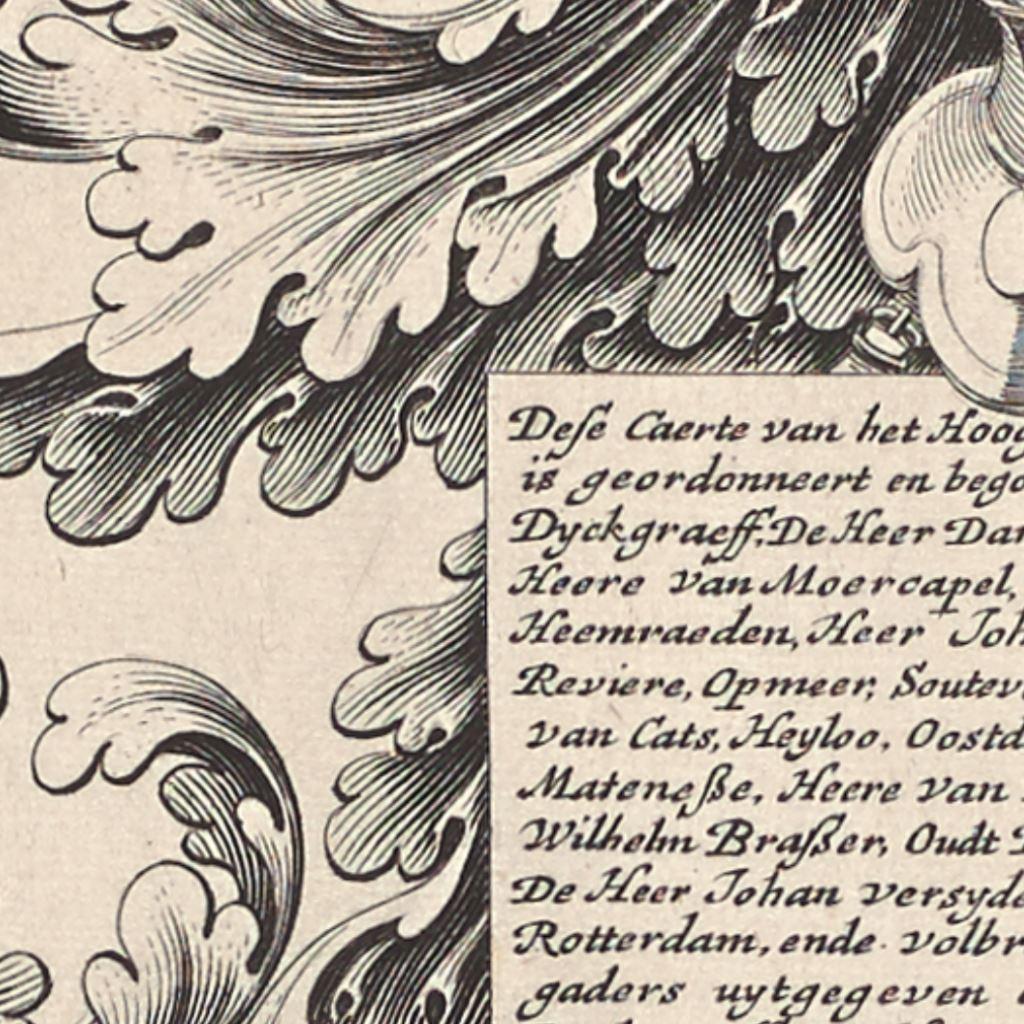 Dese Caerte van het Hoog
is geordonneert en bego
Dyckgraeff, De Heer Dan
Heere van Moercapel,
Heemraeden, Heer Joh
Reviere, Opmeer, Soutev
van Cats, Heyloo, Oostd
Mateneße, Heere van
Wilhelm Braßer, Oudt
De Heer Johan versyde
Rotterdam, ende volbr
gaders uytgegeven